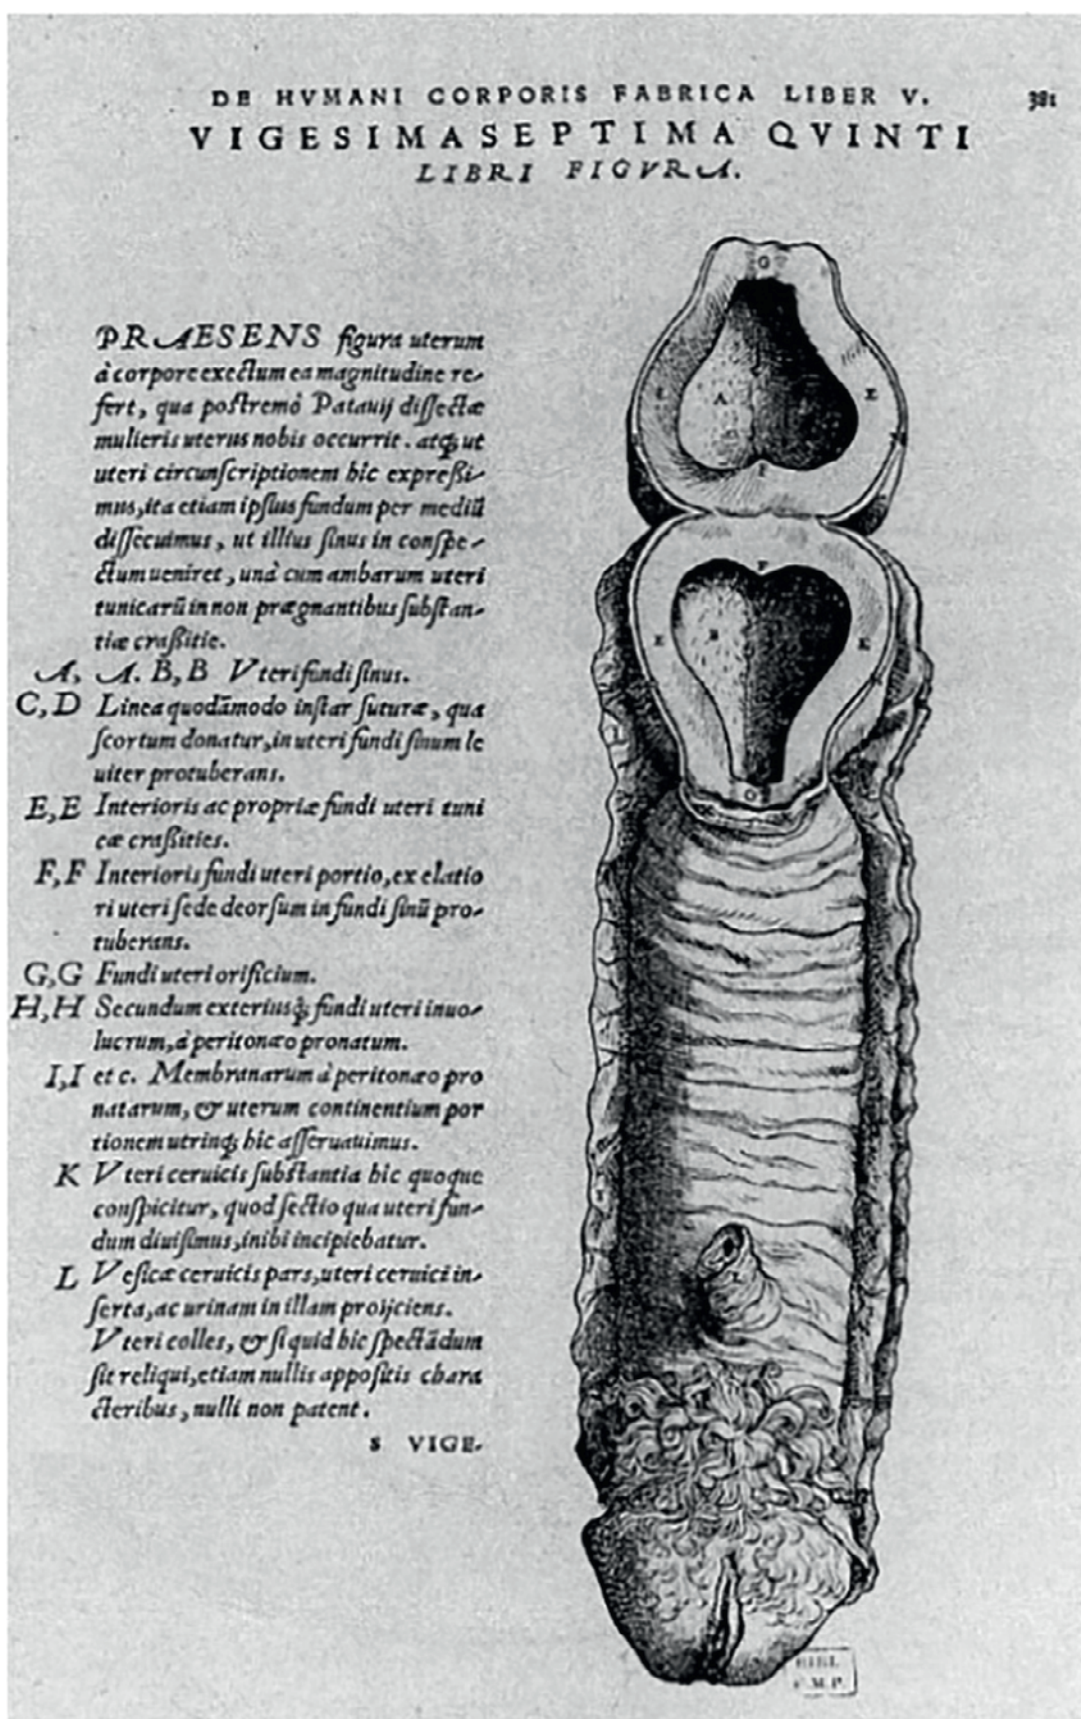 DE HVMANI CORPORIS FABRICA LIBER V. 381
VIGESIMASEPTIMA QVINTI
LIBRI FIGVRA.
PRAESENS figura uterum
à corpore exectum ea magnitudine re-
fert, qua postremò Patauij dissectæ
mulieris uterus nobis occurrit. atq; ut
uteri circunscriptionem hic expreßi-
mus, ita etiam ipsius fundum per mediũ
dissecuimus, ut illius sinus in conspe-
ctum ueniret, unà cum ambarum uteri
tunicarũ in non prægnantibus substan-
tiæ craßitie.
A, A. B, B Vteri fundi sinus.
C, D Linea quodãmodo instar suturæ, qua
scortum donatur, in uteri fundi sinum le
uiter protuberans.
E, E Interioris ac propriæ fundi uteri tuni
cæ craßities.
F, F Interioris fundi uteri portio, ex elatio
ri uteri sede deorsum in fundi sinũ pro-
tuberans.
G, G Fundi uteri orificium.
H, H Secundum exteriusq; fundi uteri inuo-
lucrum, à peritonæo pronatum.
I, I et c. Membranarum à peritonæo pro
natarum, & uterum continentium por
tionem utrinq; hic asseruauimus.
K Vteri ceruicis substantia hic quoque
conspicitur, quod sectio qua uteri fun-
dum diuisimus, inibi incipiebatur.
L Vesicæ ceruicis pars, uteri ceruici in-
serta, ac urinam in illam proijciens.
Vteri colles, & si quid hic spectãdum
sit reliqui, etiam nullis appositis chara
cteribus, nulli non patent.
s VIGE-
G
A
E
F
F
B
E
E
G
L
I
BIBL
F.M.P.